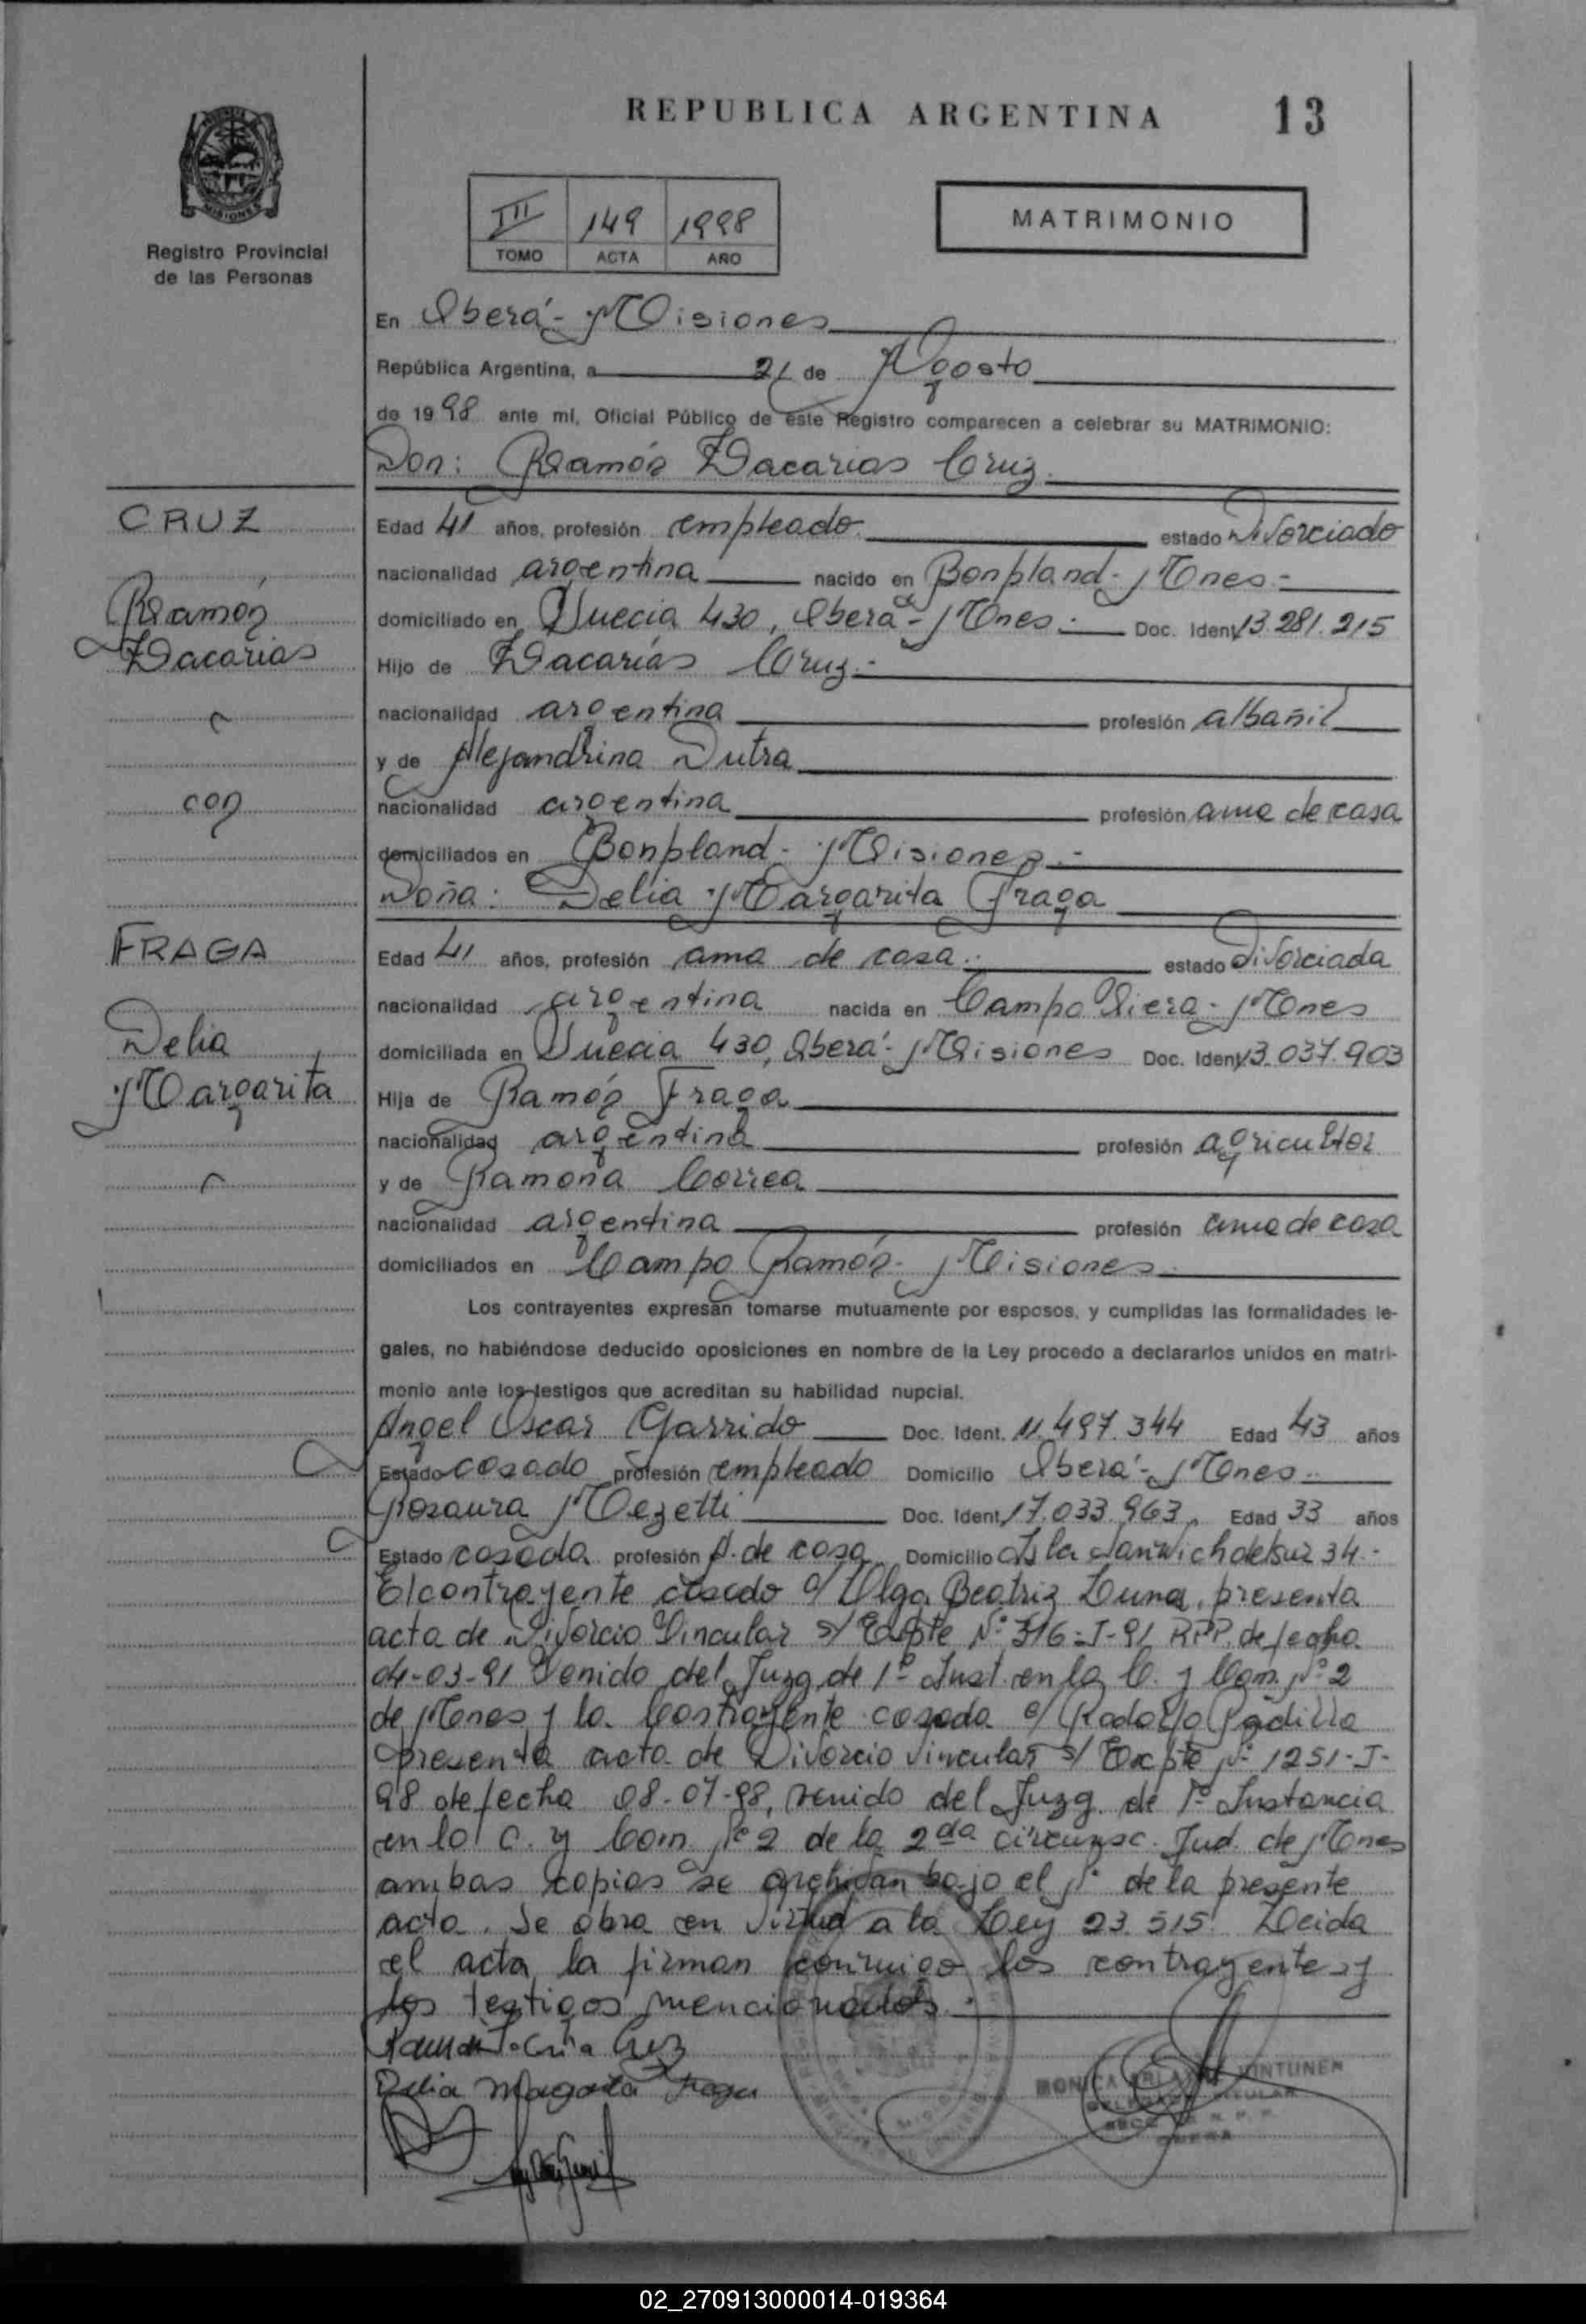 REPUBLICA ARGENTINA 13
MISIONES
Registro Provincial
de las Personas
III 149 1998
TOMO ACTA AÑO
MATRIMONIO
En Oberá - Misiones
República Argentina, a 21 de Agosto
de 1998 ante mí, Oficial Público de este Registro comparecen a celebrar su MATRIMONIO:
Don: Ramón Zacarias Cruz
CRUZ
Ramón
Zacarias
con
FRAGA
Delia
Margarita
Edad 41 años, profesión empleado estado Divorciado
nacionalidad argentina nacido en Bonpland - Mnes -
domiciliado en Suecia 430, Oberá - Mnes - Doc. Ident 13.281.215
Hijo de Zacarías Cruz -
nacionalidad argentina profesión albañil
y de Alejandrina Dutra
nacionalidad argentina profesión ama de casa
domiciliados en Bonpland - Misiones -
Doña: Delia Margarita Fraga
Edad 41 años, profesión ama de casa estado Divorciada
nacionalidad argentina nacida en Campo Viera - Mnes
domiciliada en Suecia 430, Oberá - Misiones Doc. Ident 13.037.903
Hija de Ramón Fraga
nacionalidad argentina profesión agricultor
y de Ramona Correa
nacionalidad argentina profesión ama de casa
domiciliados en Campo Ramón - Misiones
Los contrayentes expresan tomarse mutuamente por esposos, y cumplidas las formalidades le-
gales, no habiéndose deducido oposiciones en nombre de la Ley procedo a declararlos unidos en matri-
monio ante los testigos que acreditan su habilidad nupcial.
Angel Oscar Garrido Doc. Ident. 11.497.344 Edad 43 años
Estado casado profesión empleado Domicilio Oberá - Mnes
Rosaura Mezetti Doc. Ident 17.033.963 Edad 33 años
Estado casada profesión A. de casa Domicilio Isla Sanwich del sur 34 -
El contrayente casado c/ Olga Beatriz Luna, presenta
acta de Divorcio Vincular s/ Expte Nº 316-J-91 RPP. de fecha
04-03-91 Venido del Juzg. de 1º Inst. en la C. y Com. Nº 2
de Mnes y la Contrayente casada c/ Rodolfo Padilla
presenta acta de Divorcio vincular s/ Expte Nº 1251-J-
98 de fecha 08-07-98, venido del Juzg. de 1º Instancia
en lo C. y Com. Nº 2 de la 2da circunsc. Jud. de Mnes
ambas copias se archivan bajo el Nº de la presente
acta. Se obra en virtud a la Ley 23.515. Leida
el acta la firman conmigo los contrayentes y
los testigos mencionados.
Delia Margarita Fraga
02_270913000014-019364